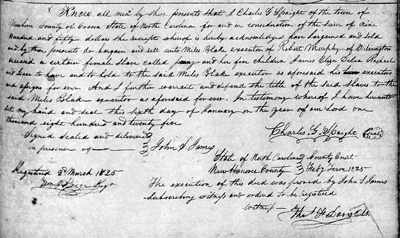 Know all men by these presents that I Charles G Spaight of the town of
Newbern county of Craven State of North Carolina for and in consideration of the sum of nine
hundred and fifty dollars the receipt whereof is hereby acknowledged have bargained and sold
and by these presents do bargain and sell unto Miles Blake executor of Robert Murphy of Wilmington
a certain female Slave called and her children James Eliza Celia Rachel
and to have and to hold to the said Miles Blake executor as aforesaid his executors
and assigns for ever. And I further warrant and defend the title of the said Slaves to the
said Miles Blake executor as aforesaid for ever. In testimony whereof I have hereunto
set my hand and seal this sixth day of January in the year of our Lord one
thousand eight hundred and twenty five
Signed sealed and delivered
in presence of
John S James
Charles G Spaight (Seal)
Registered 8th March 1825
State of North Carolina County Court
New Hanover County Feby Term 1825
The execution of this deed was proved by John S James
subscribing witness and ordered to be registered